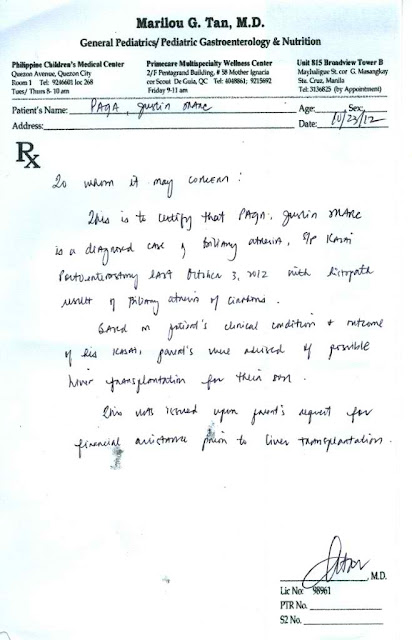 Marilou G. Tan, M.D.
General Pediatrics/ Pediatric Gastroenterology & Nutrition
Philippine Children's Medical Center
Quezon Avenue, Quezon City
Room 1 Tel: 9246601 loc 268
Tues/ Thurs 8- 10 am
Primecare Multispecialty Wellness Center
2/F Pentagrand Building, # 58 Mother Ignacia
cor Scout De Guia, QC Tel: 4048861; 9215692
Friday 9-11 am
Unit 815 Broadview Tower B
Mayhaligue St. cor G. Masangkay
Sta. Cruz, Manila
Tel: 3136825 (by Appointment)
Patient's Name: PAGA, Justin Marc Age: Sex:
Address: Date: 10/23/12
Rx
To whom it may concern:
This is to certify that PAGA, Justin Marc
is a diagnosed case of biliary atresia, S/P Kasai
Portoenterostomy last October 3, 2012 with histopath
result of Biliary atresia
Based on patient's clinical condition & outcome
of his Kasai, parent's were advised of possible
liver transplantation for their son.
This was issued upon parent's request for
financial assistance prior to liver transplantation.
, M.D.
Lic No: 98961
PTR No.
S2 No.